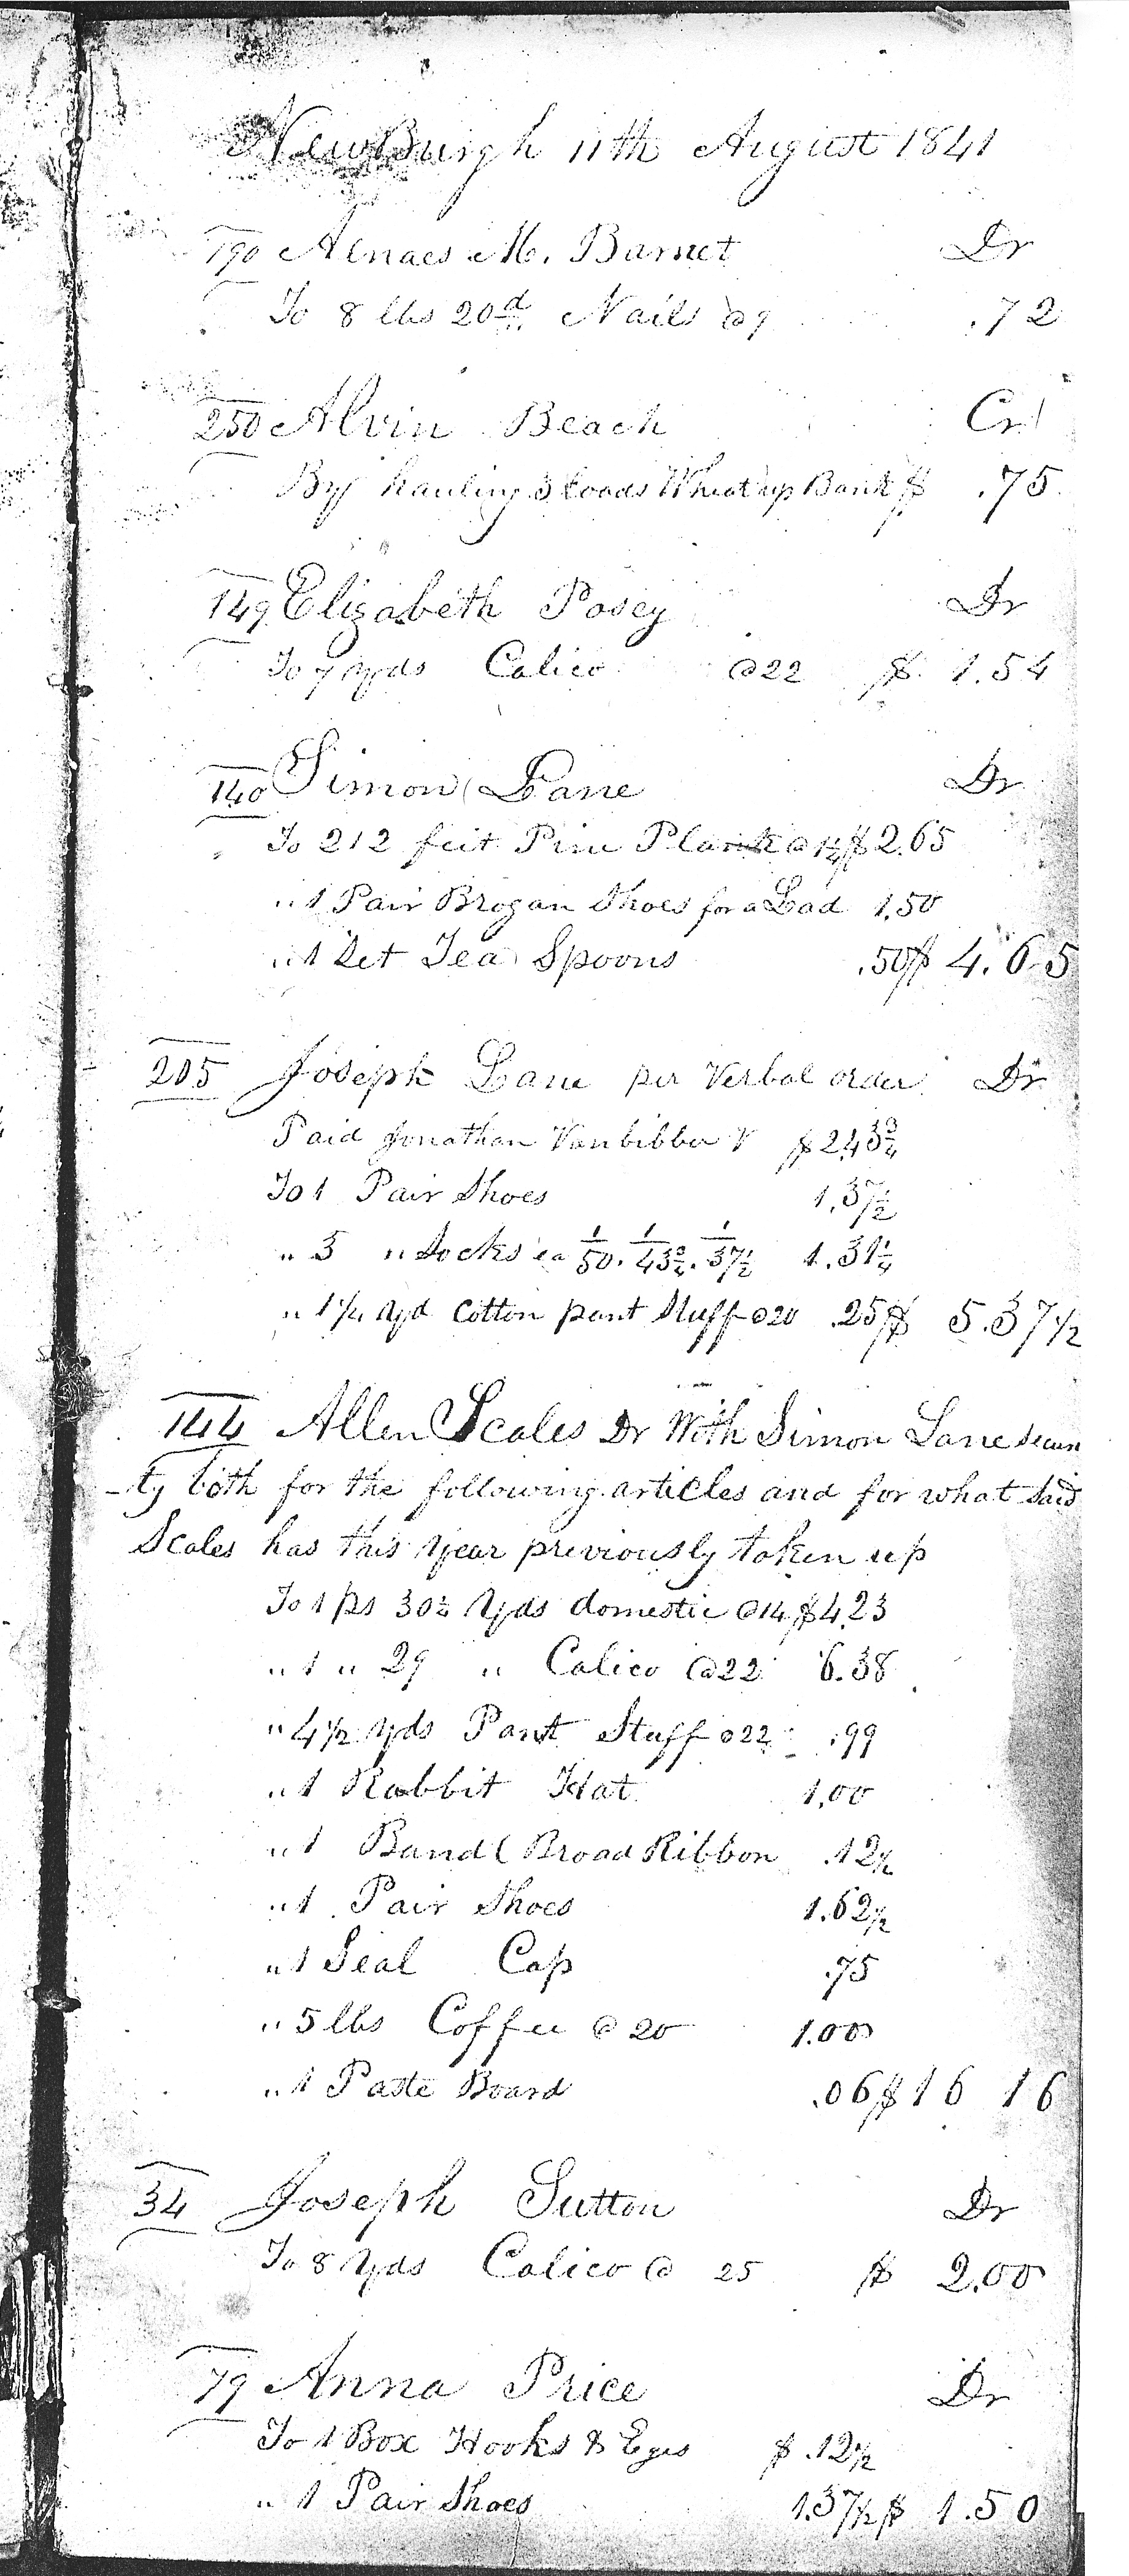 NewBurgh 11th August 1841
190 Aenaes M. Barnet Dr
To 8 lbs 20d Nails @9 .72
250 Alvin Beach Cr
By hauling 3 loads Wheat up Bank $ .75
149 Elizabeth Posey Dr
To 7 Yds Calico @22 $ 1.54
140 Simon Lane Dr
To 212 feet Pine Plank @ 1¼ $2.65
" 1 Pair Brogan Shoes for a Lad 1.50
" 1 Set Tea Spoons .50 $ 4.65
205 Joseph Lane per Verbal order Dr
Paid Jonathan Vanbibber $2.43¾
To 1 Pair Shoes 1.37½
" 3 " Socks 1/50. 1/43¾. 1/37½ 1.31¼
" 1¼ Yd Cotton pant Stuff @20 .25 $ 5.37½
144 Allen Scales Dr With Simon Lane Secur
-ty both for the following articles and for what Said
Scales has this Year previously taken up
To 1 ps 30¼ Yds domestic @14 $4.23
" 1 " 29 " Calico @22 6.38
" 4½ Yds Pant Stuff @22 .99
" 1 Rabbit Hat 1.00
" 1 Band (Broad Ribbon .12½
" 1 Pair Shoes 1.62½
" 1 Seal Cap .75
" 5 lbs Coffee @ 20 1.00
" 1 Paste Board .06 $16 16
34 Joseph Sutton Dr
To 8 Yds Calico @ 25 $ 2.00
79 Anna Price Dr
To 1 Box Hooks & Eyes $ .12½
" 1 Pair Shoes 1.37½ $ 1.50